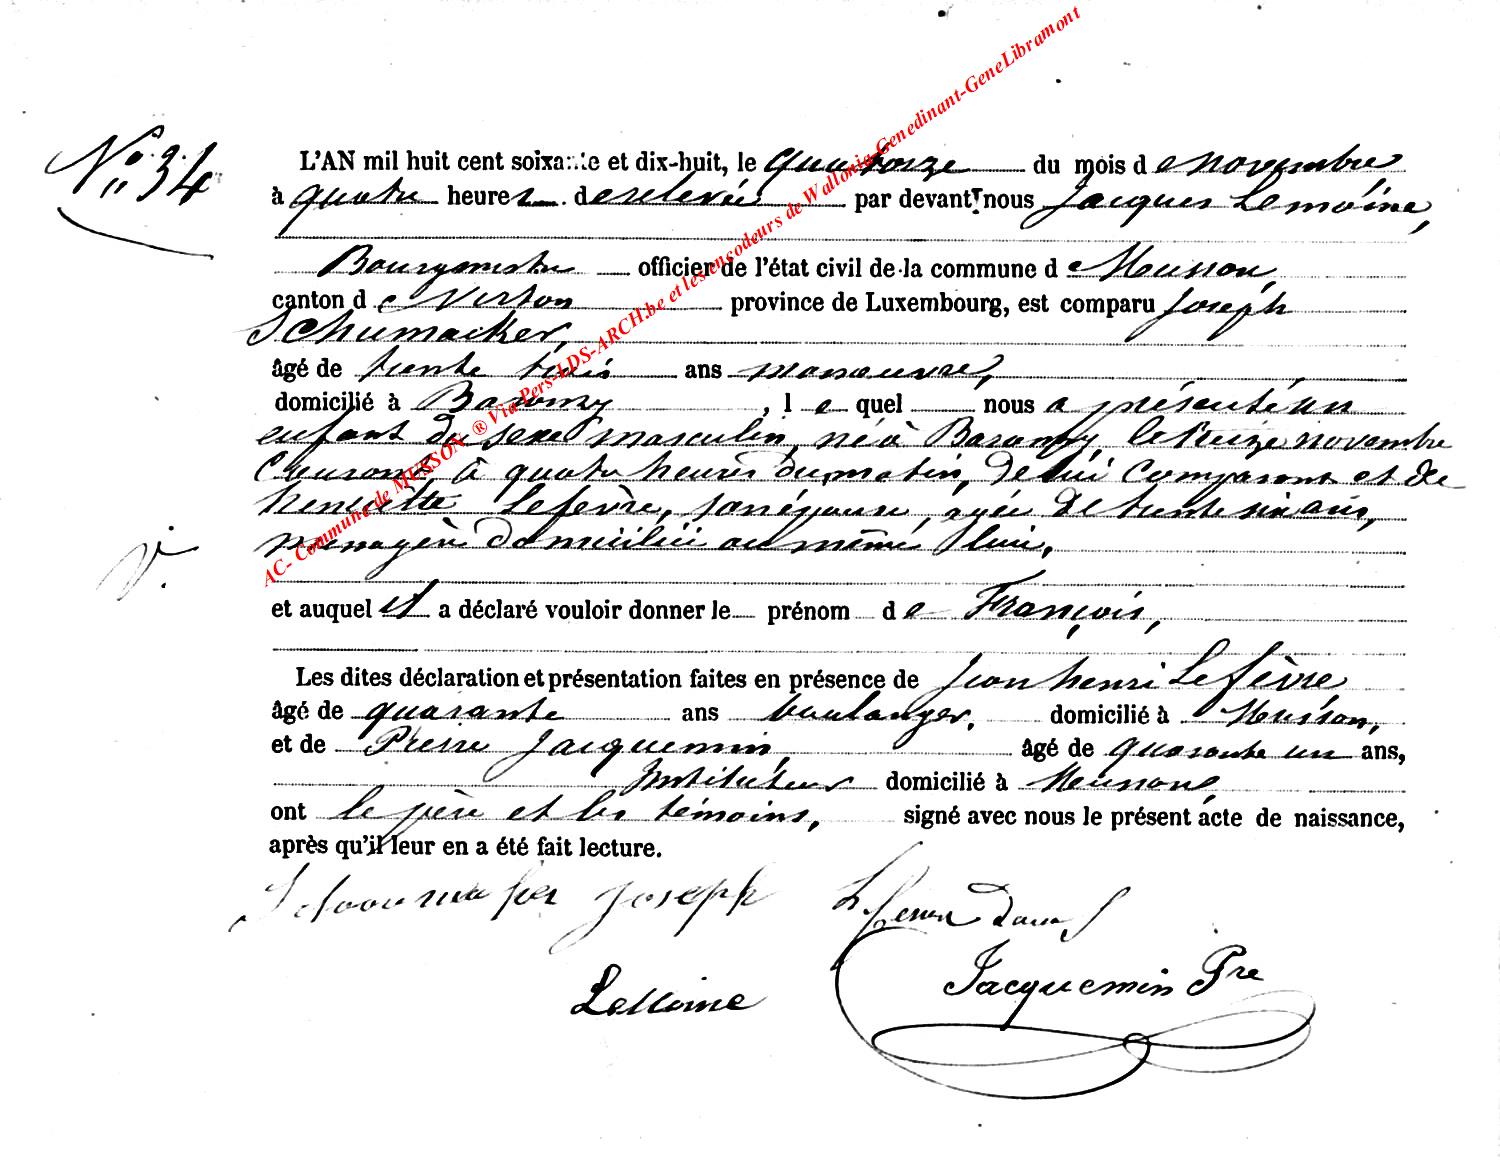 N° 34
L'AN mil huit cent soixante et dix-huit, le quatorze du mois de novembre
à quatre heures de relevée par devant nous Jacques Lemoine,
Bourgmestre officier de l'état civil de la commune de Musson,
canton de Virton province de Luxembourg, est comparu Joseph
Schumacker,
âgé de trente trois ans manœuvre,
domicilié à Baranzy, lequel nous a présenté un
enfant du sexe masculin, né à Baranzy, le treize novembre
courant, à quatre heures du matin, de lui comparant et de
henriette Lefèvre, son épouse, agée de trente six ans,
ménagère domiciliée au même lieu,
et auquel il a déclaré vouloir donner le prénom de François,
Les dites déclaration et présentation faites en présence de Jean henri Lefèvre
âgé de quarante ans boulanger, domicilié à Musson,
et de Pierre Jacquemin, âgé de quarante un ans,
Instituteur domicilié à Musson,
ont le père et les témoins, signé avec nous le présent acte de naissance,
après qu'il leur en a été fait lecture.
Joseph
Lemoine
Jacquemin Pre
AC- Commune de MUSSON ® Via Pers-LDS-ARCH.be et les encodeurs de Wallonia-Genedinant-GeneLibramont